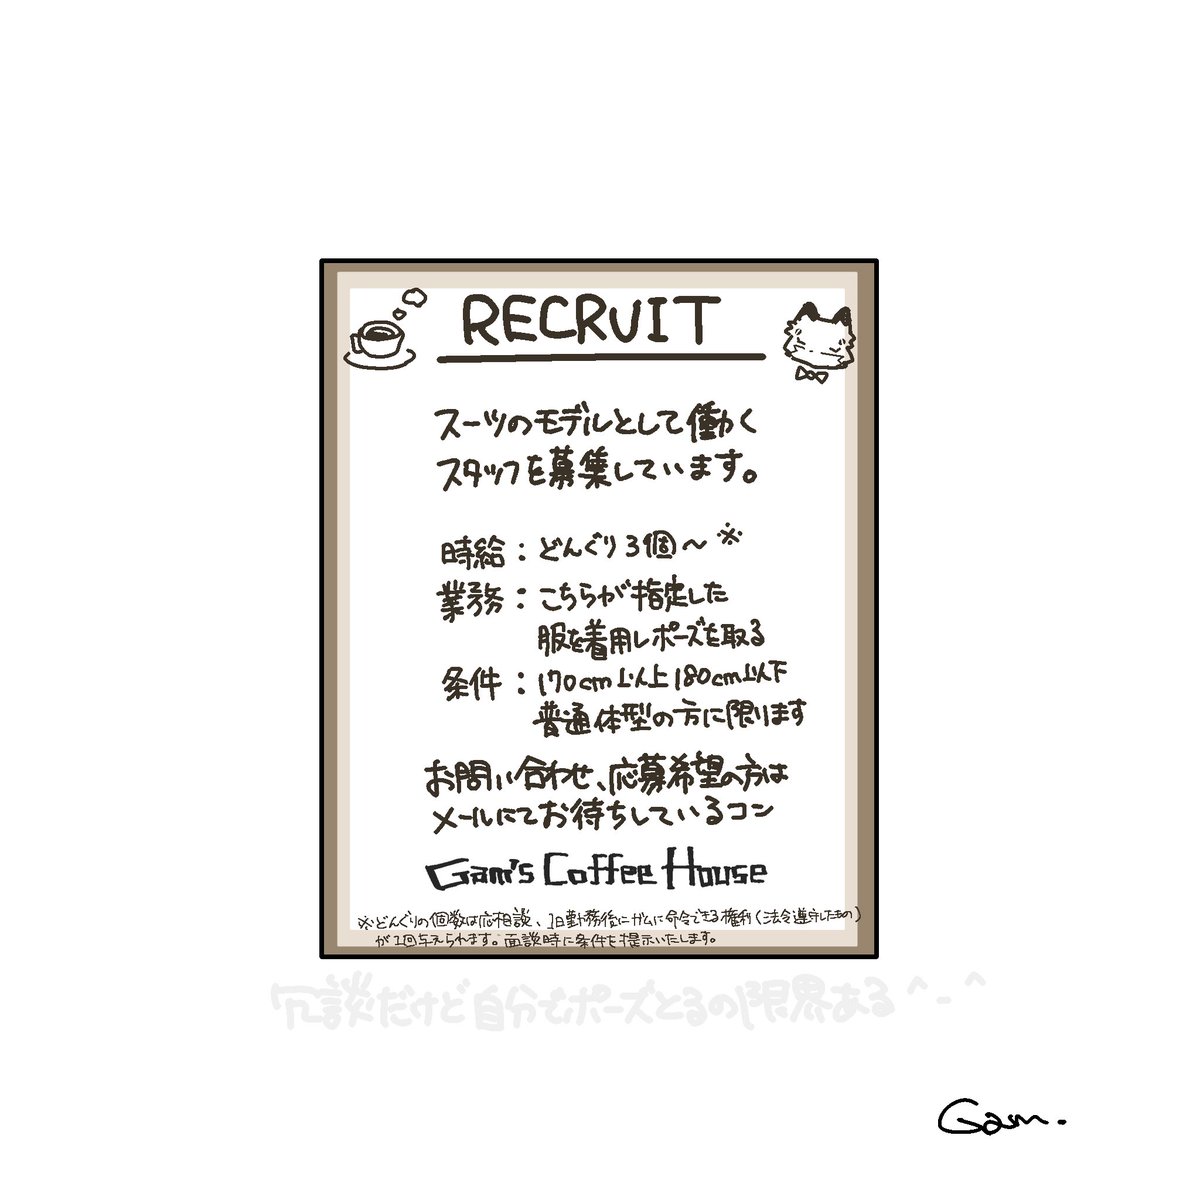 RECRUIT
スーツのモデルとして働く
スタッフを募集しています。
時給：どんぐり3個〜※
業務：こちらが指定した
服を着用しポーズを取る
条件：170cm以上180cm以下
普通体型の方に限ります
お問い合わせ、応募希望の方は
メールにてお待ちしているコン
Gam's Coffee House
※どんぐりの個数は応相談、1日勤務後にガムに命令できる権利(法令遵守したもの)
が1回与えられます。面談時に条件を提示いたします。
冗談だけど自分でポーズとるの限界ある^-^
Gam.